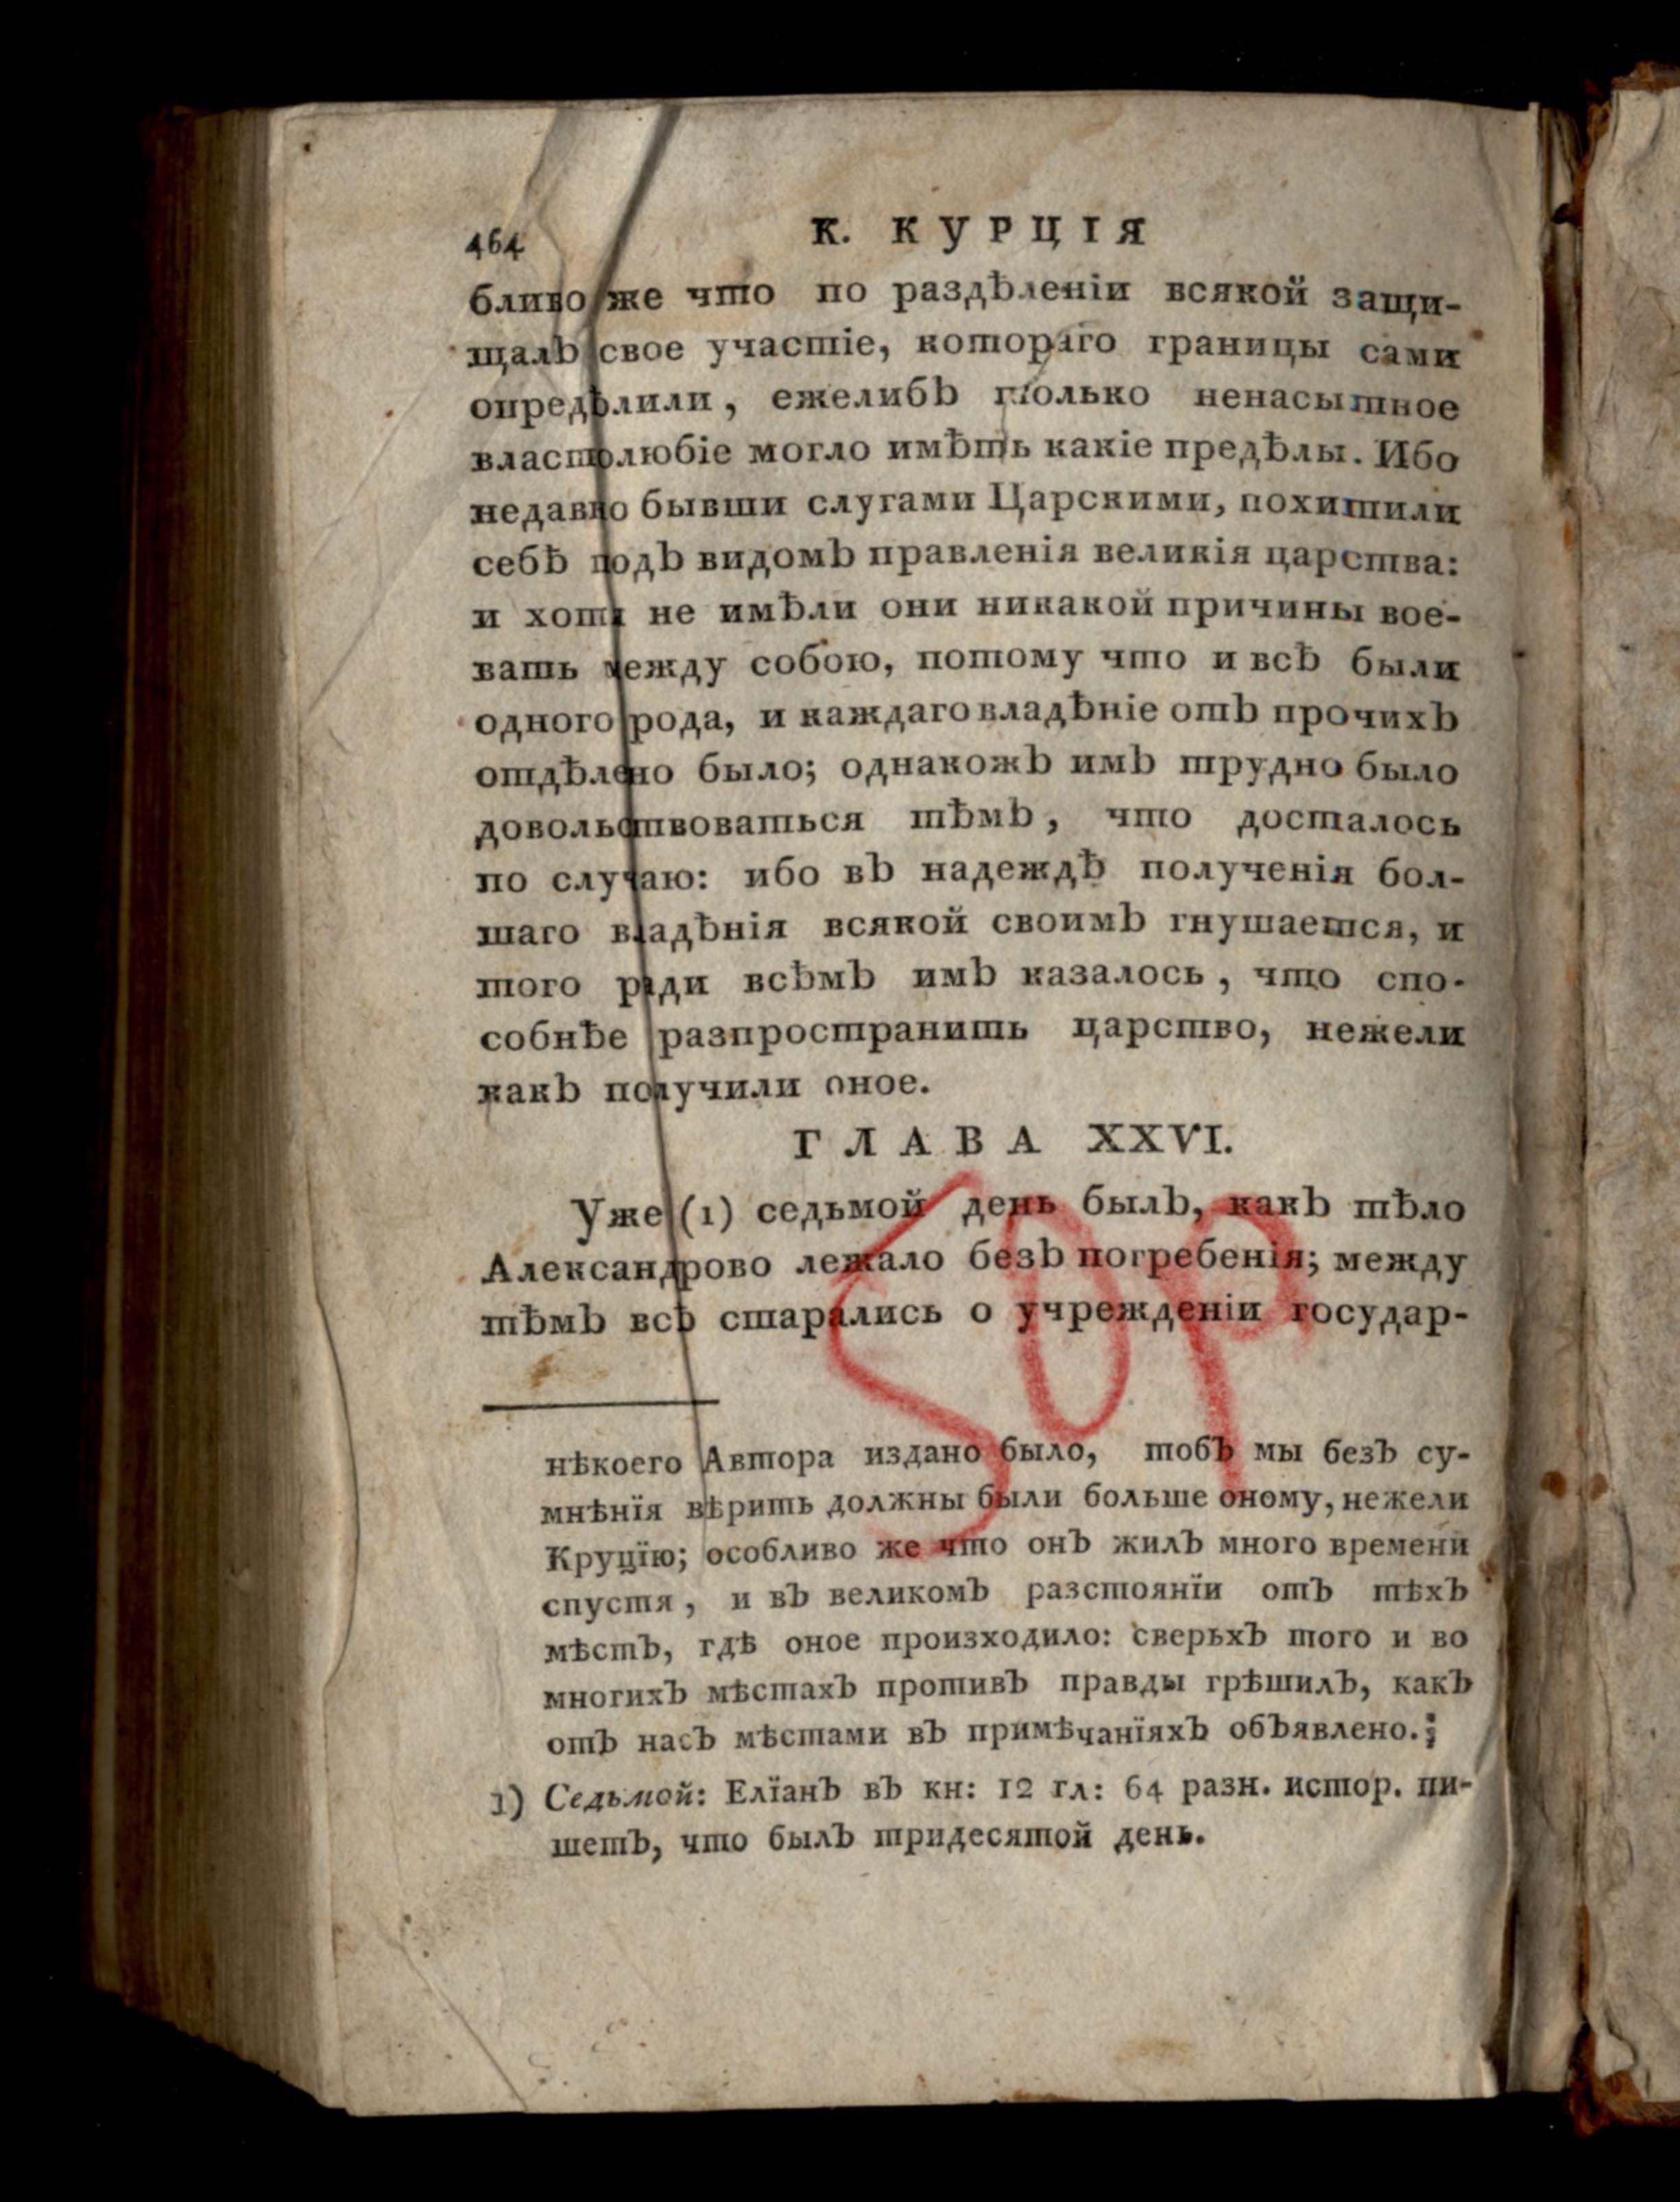 464
К. КУРЦІЯ
бливо же что по раздѣленіи всякой защи-
щалъ свое участіе, котораго границы сами
опредѣлили, ежелибъ только ненасытное
властолюбіе могло имѣть какіе предѣлы. Ибо
недавно бывши слугами Царскими, похитили
себѣ подъ видомъ правленія великія царства:
и хотя не имѣли они никакой причины вое-
вать между собою, потому что и всѣ были
одного рода, и каждаго владѣніе отъ прочихъ
отдѣлено было; однакожъ имъ трудно было
довольствоваться тѣмъ, что досталось
по случаю: ибо въ надеждѣ полученія бол-
шаго владѣнія всякой своимъ гнушается, и
того ради всѣмъ имъ казалось, что спо-
собнѣе разпространить царство, нежели
какъ получили оное.
ГЛАВА XXVI.
Уже (1) седьмой день былъ, какъ тѣло
Александрово лежало безъ погребенія; между
тѣмъ всѣ старались о учрежденіи государ-
нѣкоего Автора издано было, тобъ мы безъ су-
мнѣнїя вѣрить должны были больше оному, нежели
Круцїю; особливо же что онъ жилъ много времени
спустя, и въ великомъ разстоянїи отъ тѣхъ
мѣстъ, гдѣ оное произходило: сверьхъ того и во
многихъ мѣстахъ противъ правды грѣшилъ, какъ
отъ насъ мѣстами въ примѣчанїяхъ объявлено.;
1) Седьмой: Елїанъ въ кн: 12 гл: 64 разн. истор. пи-
шетъ, что былъ тридесятой день.